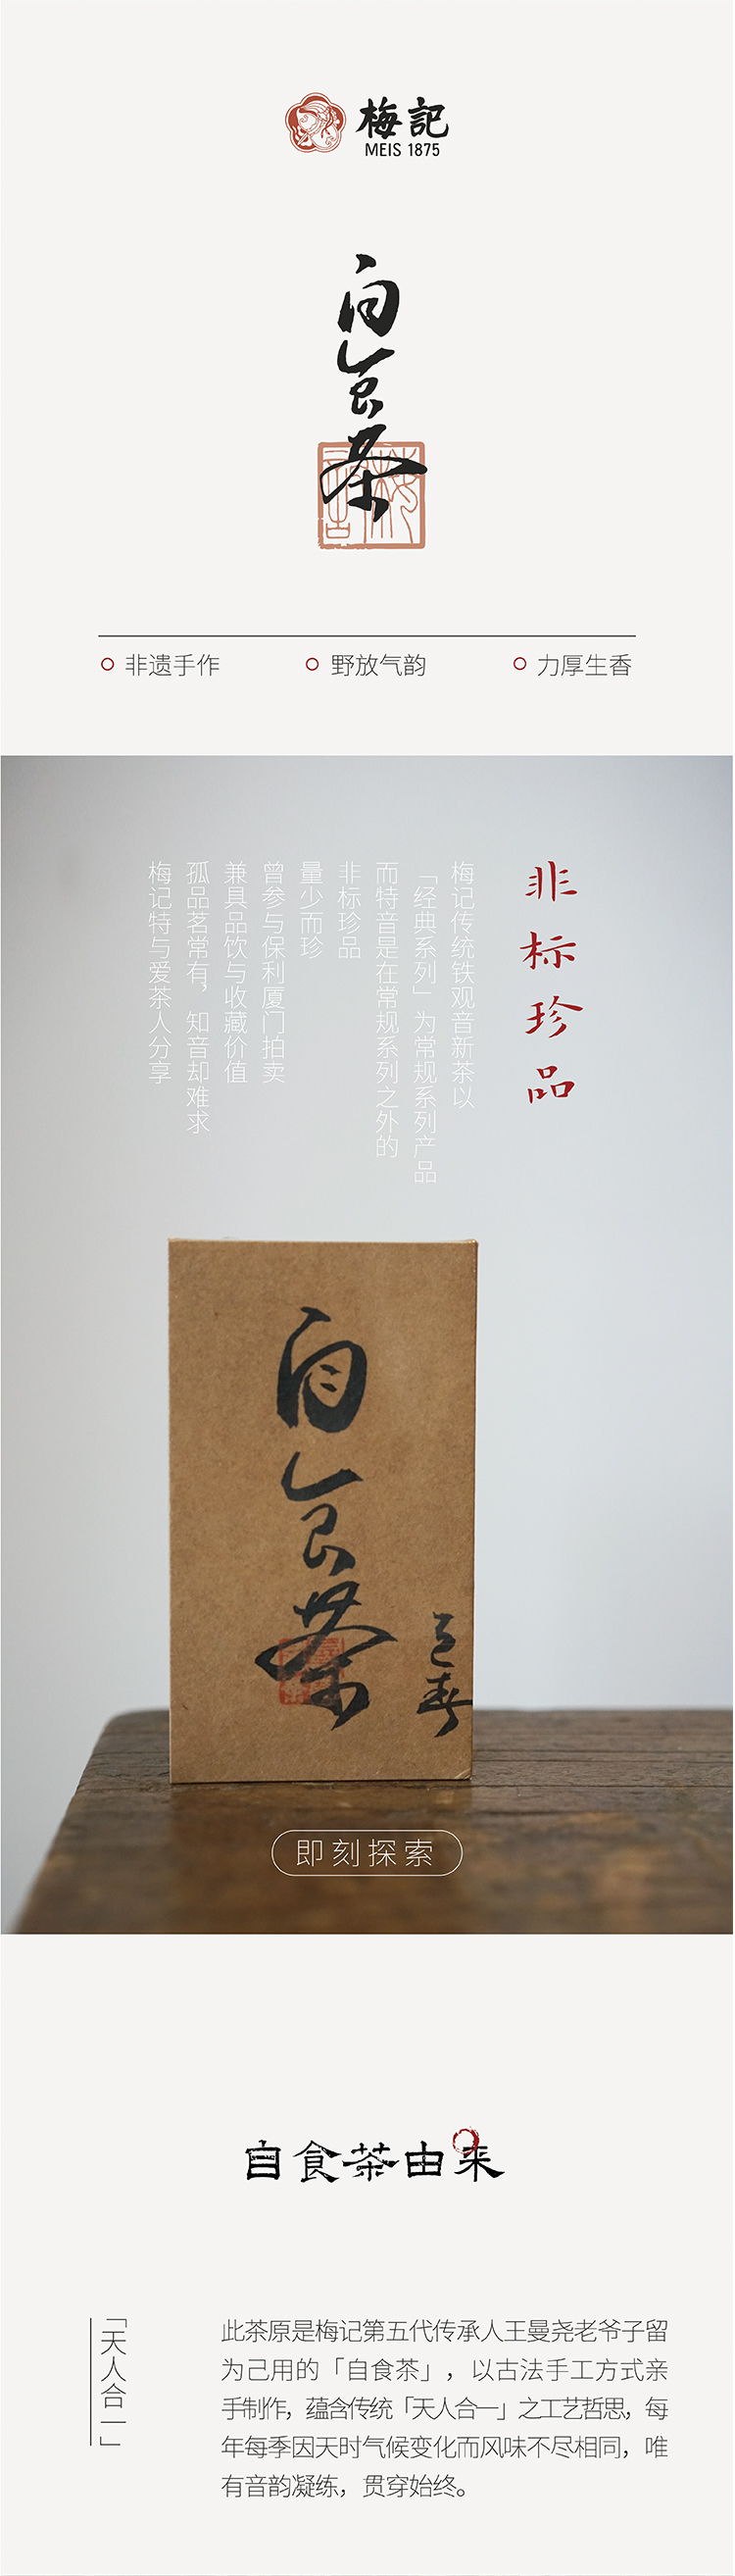 梅記
MEIS 1875
自食茶
非遗手作
野放气韵
力厚生香
非标珍品
梅记传统铁观音新茶以
「经典系列」为常规系列产品
而特音是在常规系列之外的
非标珍品
量少而珍
曾参与保利厦门拍卖
兼具品饮与收藏价值
孤品茗常有，知音却难求
梅记特与爱茶人分享
自食茶
即刻探索
自食茶由来
「天人合一」
此茶原是梅记第五代传承人王曼尧老爷子留
为己用的「自食茶」，以古法手工方式亲
手制作，蕴含传统「天人合一」之工艺哲思，每
年每季因天时气候变化而风味不尽相同，唯
有音韵凝练，贯穿始终。